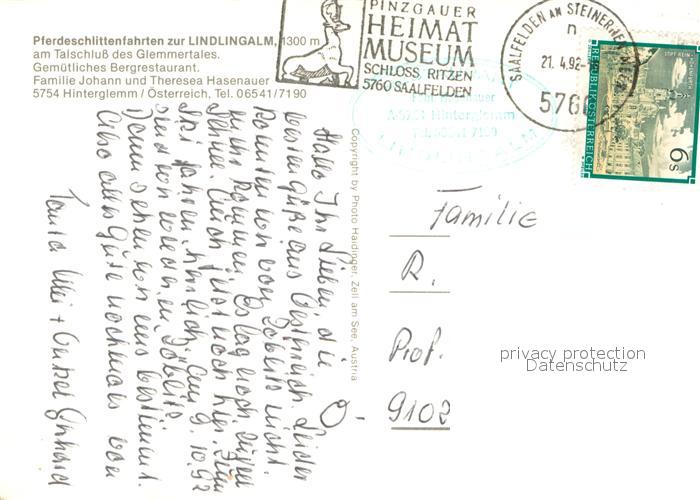 Pferdeschlittenfahrten zur LINDLINGALM, 1300 m
am Talschluß des Glemmertales.
Gemütliches Bergrestaurant.
Familie Johann und Theresea Hasenauer
5754 Hinterglemm / Österreich, Tel. 06541/7190
PINZGAUER
HEIMAT
MUSEUM
SCHLOSS RITZEN
5760 SAALFELDEN
SAALFELDEN AM STEINERNEN
n
21.4.92-
5760
REPUBLIK ÖSTERREICH
6s
Fam. Hasenauer
A-5754 Hinterglemm
Tel. 06541 7190
LINDLINGALM
Copyright by Photo Haidinger, Zell am See, Austria
Hallo Ihr Lieben, die
besten Grüße aus Österreich. Leider
konnten wir von Döbeln nicht
mehr kommen. Es lag noch
Schnee. Auch jetzt noch hier zum
Ski fahren, herrlich. Am 9.10.92
sind wir wieder in Döbeln.
Dann sehen wir uns bestimmt.
Also alles Gute nochmals von
Tanta + Onkel Gerhard
Familie
R.
Prof.
O-9102
privacy protection
Datenschutz